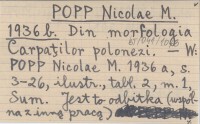 POPP Nicolae M.
1936 b. Din morfologia
Carpaților polonezi. — W:
POPP Nicolae M. 1936 a, s.
3-26, ilustr., tabl. 2, m. 1,
Sum. Jest to odbitka (wspól-
na z inną pracą)